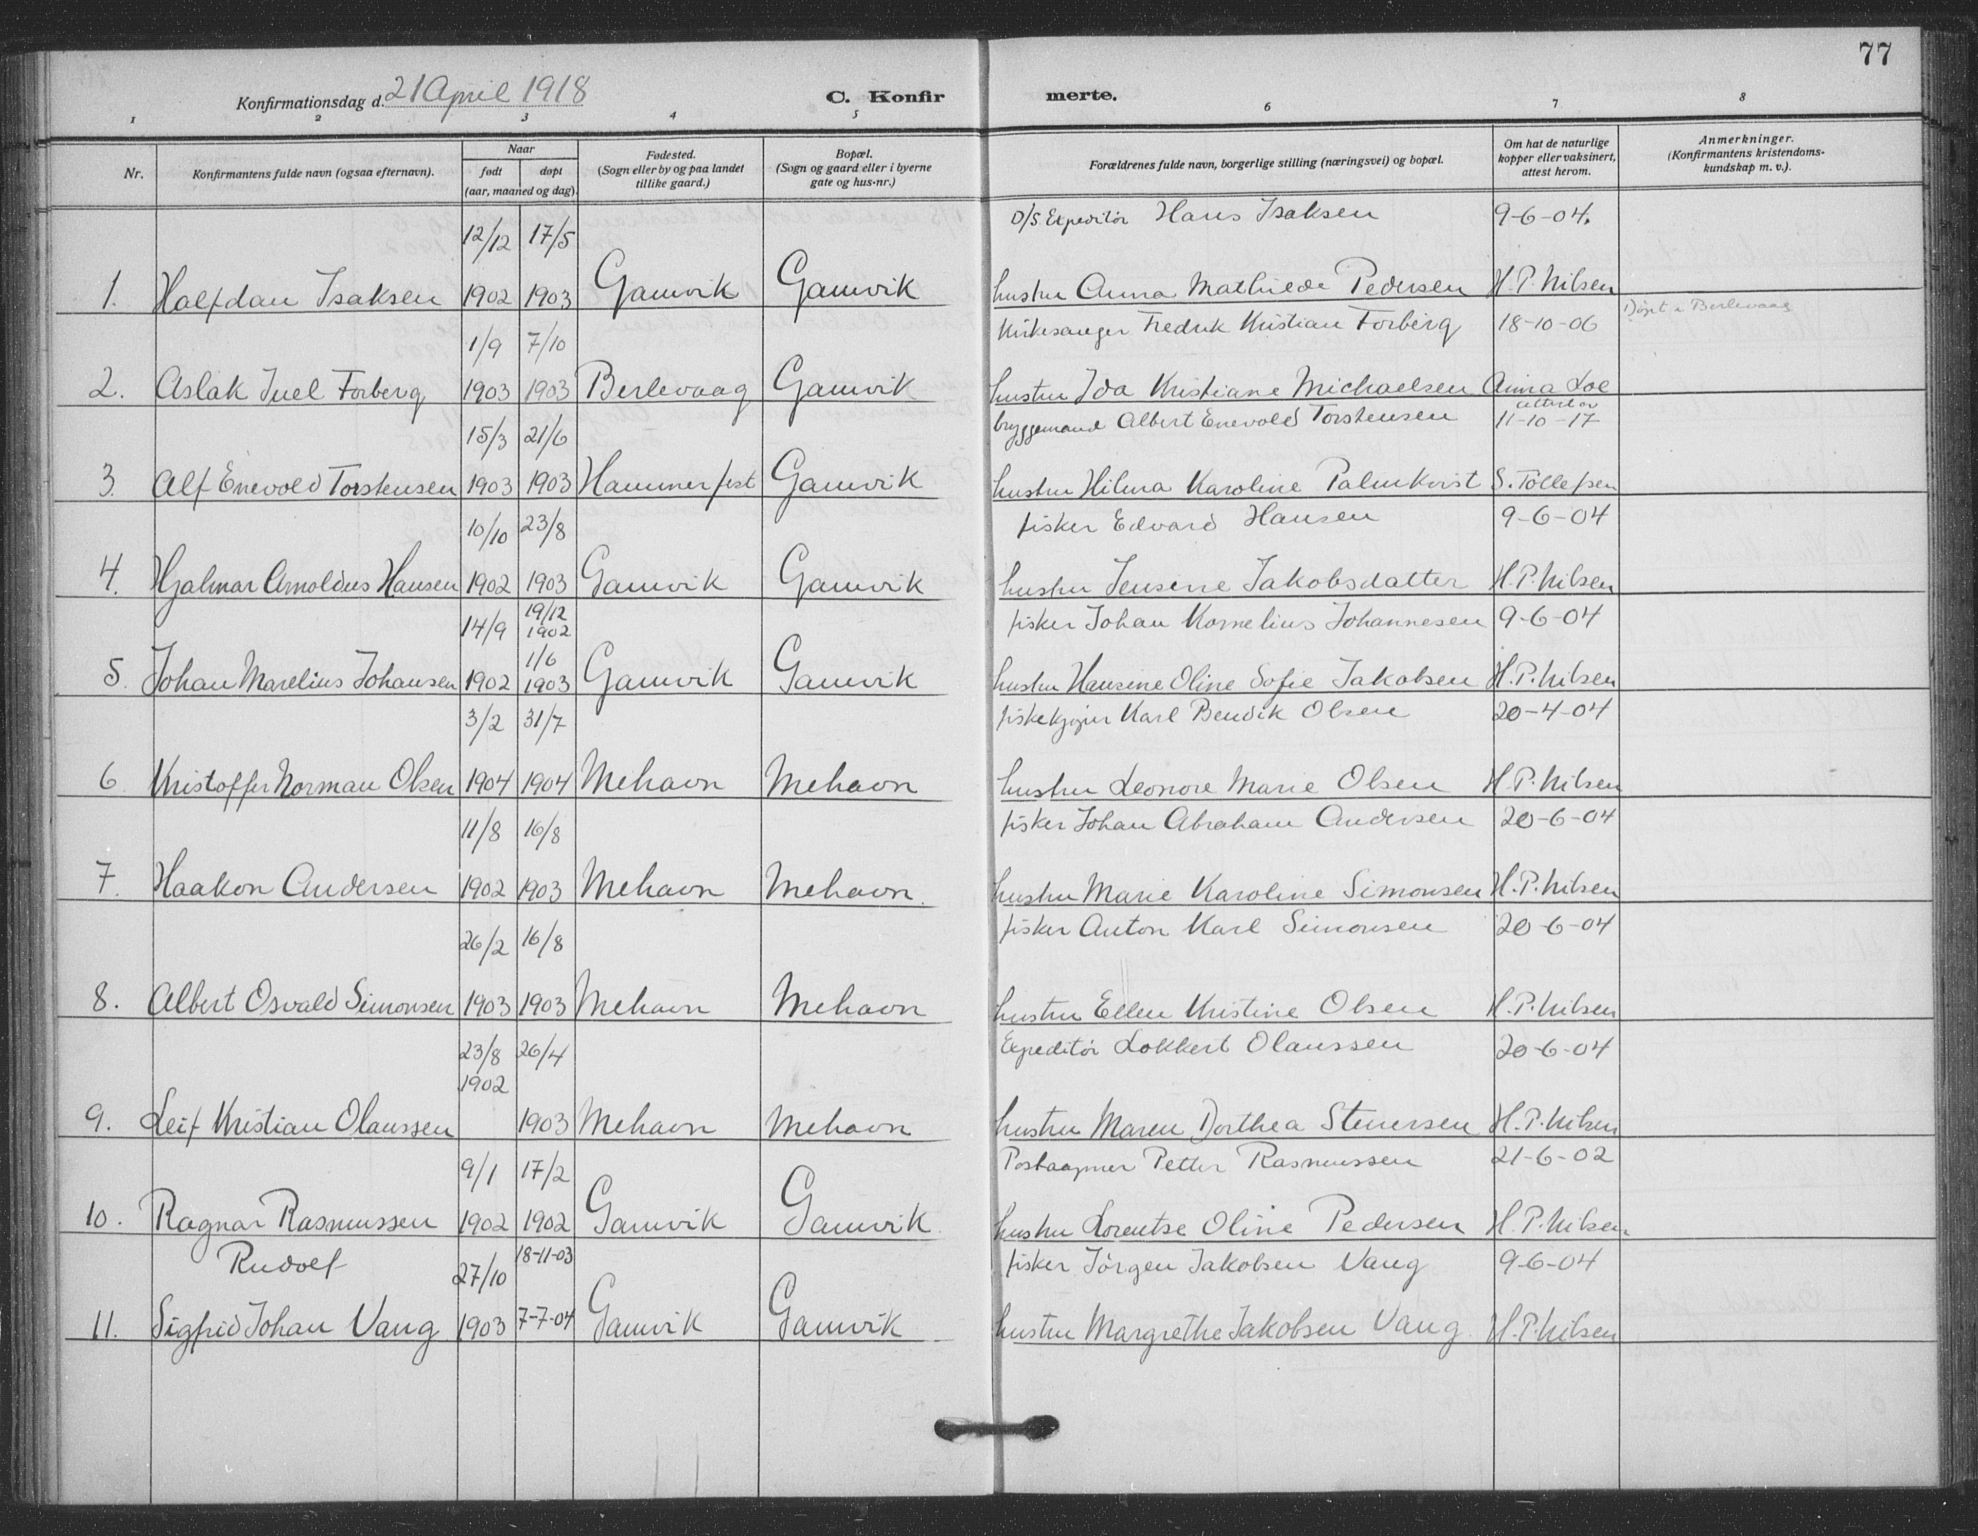 77
Konfirmationsdag d. 21 April 1918
C. Konfir merte.
1 2 3 4 5 6 7 8
Nr. Konfirmantens fulde navn (ogsaa efternavn). Naar født døpt (aar, maaned og dag). Fødested. (Sogn eller by og paa landet tillike gaard.) Bopæl. (Sogn og gaard eller i byerne gate og hus-nr.) Forældrenes fulde navn, borgerlige stilling (næringsvei) og bopæl. Om hat de naturlige kopper eller vaksinert, attest herom. Anmerkninger. (Konfirmantens kristendoms-kundskap m. v.).
12/12 17/5 D/S Expeditør Hans Isaksen 9-6-04.
1. Halfdan Isaksen 1902 1903 Gamvik Gamvik hustru Anna Mathilde Pedersen H. P. Nilsen
1/9 7/10 Kirkesanger Fredrik Kristian Forberg 18-10-06 Døpt i Berlevaag
2. Aslak Juel Forberg 1903 1903 Berlevaag Gamvik hustru Ida Kristiane Michaelsen Anna Loe
15/3 21/6 bryggemand Albert Enevold Torstensen 11-10-17
3. Alf Enevold Torstensen 1903 1903 Hammerfest Gamvik hustru Hilma Karoline Palmkvist S. Tollefsen
10/10 23/8 fisker Edvard Hansen 9-6-04
4. Hjalmar Arnoldus Hansen 1902 1903 Gamvik Gamvik hustru Jensine Jakobsdatter H. P. Nilsen
14/9 19/12 1902 fisker Johan Kornelius Johannesen 9-6-04
5. Johan Marelius Johansen 1902 1/6 1903 Gamvik Gamvik hustru Hansine Oline Sofie Jakobsen H. P. Nilsen
3/2 31/7 fiskekjøper Karl Bendik Olsen 20-4-04
6 Kristoffer Norman Olsen 1904 1904 Mehavn Mehavn hustru Leonore Marie Olsen H. P. Nilsen
11/8 16/8 fisker Johan Abraham Andersen 20-6-04
7. Haakon Andersen 1902 1903 Mehavn Mehavn. hustru Marie Karoline Simonsen H. P. Nilsen
26/2 16/8 fisker Anton Karl Simonsen 20-6-04
8. Albert Osvald Simonsen 1903 1903 Mehavn Mehavn hustru Ellen Kristine Olsen H. P. Nilsen
23/8 1902 26/4 Expeditør Lokkert Olaussen 20-6-04
9. Leif Kristian Olaussen 1903 Mehavn Mehavn hustru Maren Dorthea Stenersen H. P. Nilsen
9/1 17/2 Postaapner Petter Rasmussen 21-6-02
10. Ragnar Rasmussen 1902 1902 Gamvik Gamvik hustru Lorentse Oline Pedersen H. P. Nilsen
Rudolf 27/10 18-11-03 fisker Jörgen Jakobsen Vang 9-6-04
11. Sigfrid Johan Vang 1903 7-7-04 Gamvik Gamvik hustru Margrethe Jakobsen Vang H. P. Nilsen